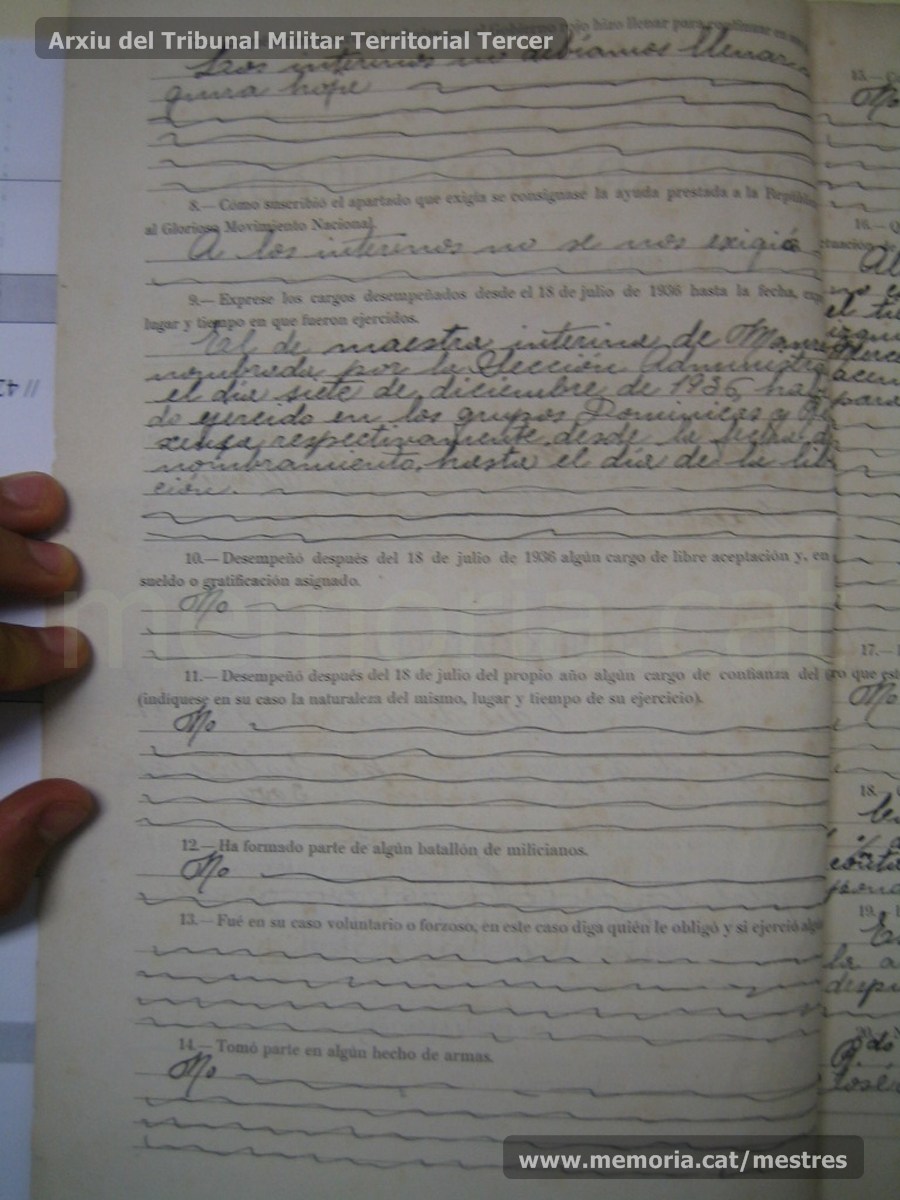 Arxiu del Tribunal Militar Territorial Tercer
rojo hizo llenar para continuar en
Los interinos no debíamos llenar
hoja
8.— Cómo suscribió el apartado que exigía se consignase la ayuda prestada a la República
al Glorioso Movimiento Nacional
A los interinos no se nos exigió
9.— Exprese los cargos desempeñados desde el 18 de julio de 1936 hasta la fecha,
lugar y tiempo en que fueron ejercidos.
El de maestra interina de
nombrada por la Sección
el día siete de diciembre de 1936,
do ejercido en los grupos Dominicas y
respectivamente, desde la fecha
nombramiento, hasta el día de la
ción.
10.— Desempeñó después del 18 de julio de 1936 algún cargo de libre aceptación y, en
sueldo o gratificación asignado.
No
11.— Desempeñó después del 18 de julio del propio año algún cargo de confianza del
(indíquese en su caso la naturaleza del mismo, lugar y tiempo de su ejercicio).
No
12.— Ha formado parte de algún batallón de milicianos.
No
13.— Fué en su caso voluntario o forzoso, en este caso diga quién le obligó y si ejerció
14.— Tomó parte en algún hecho de armas.
No
15.—
No
16.—
17.—
No
18.—
19.—
la
José
memoria.cat
www.memoria.cat/mestres